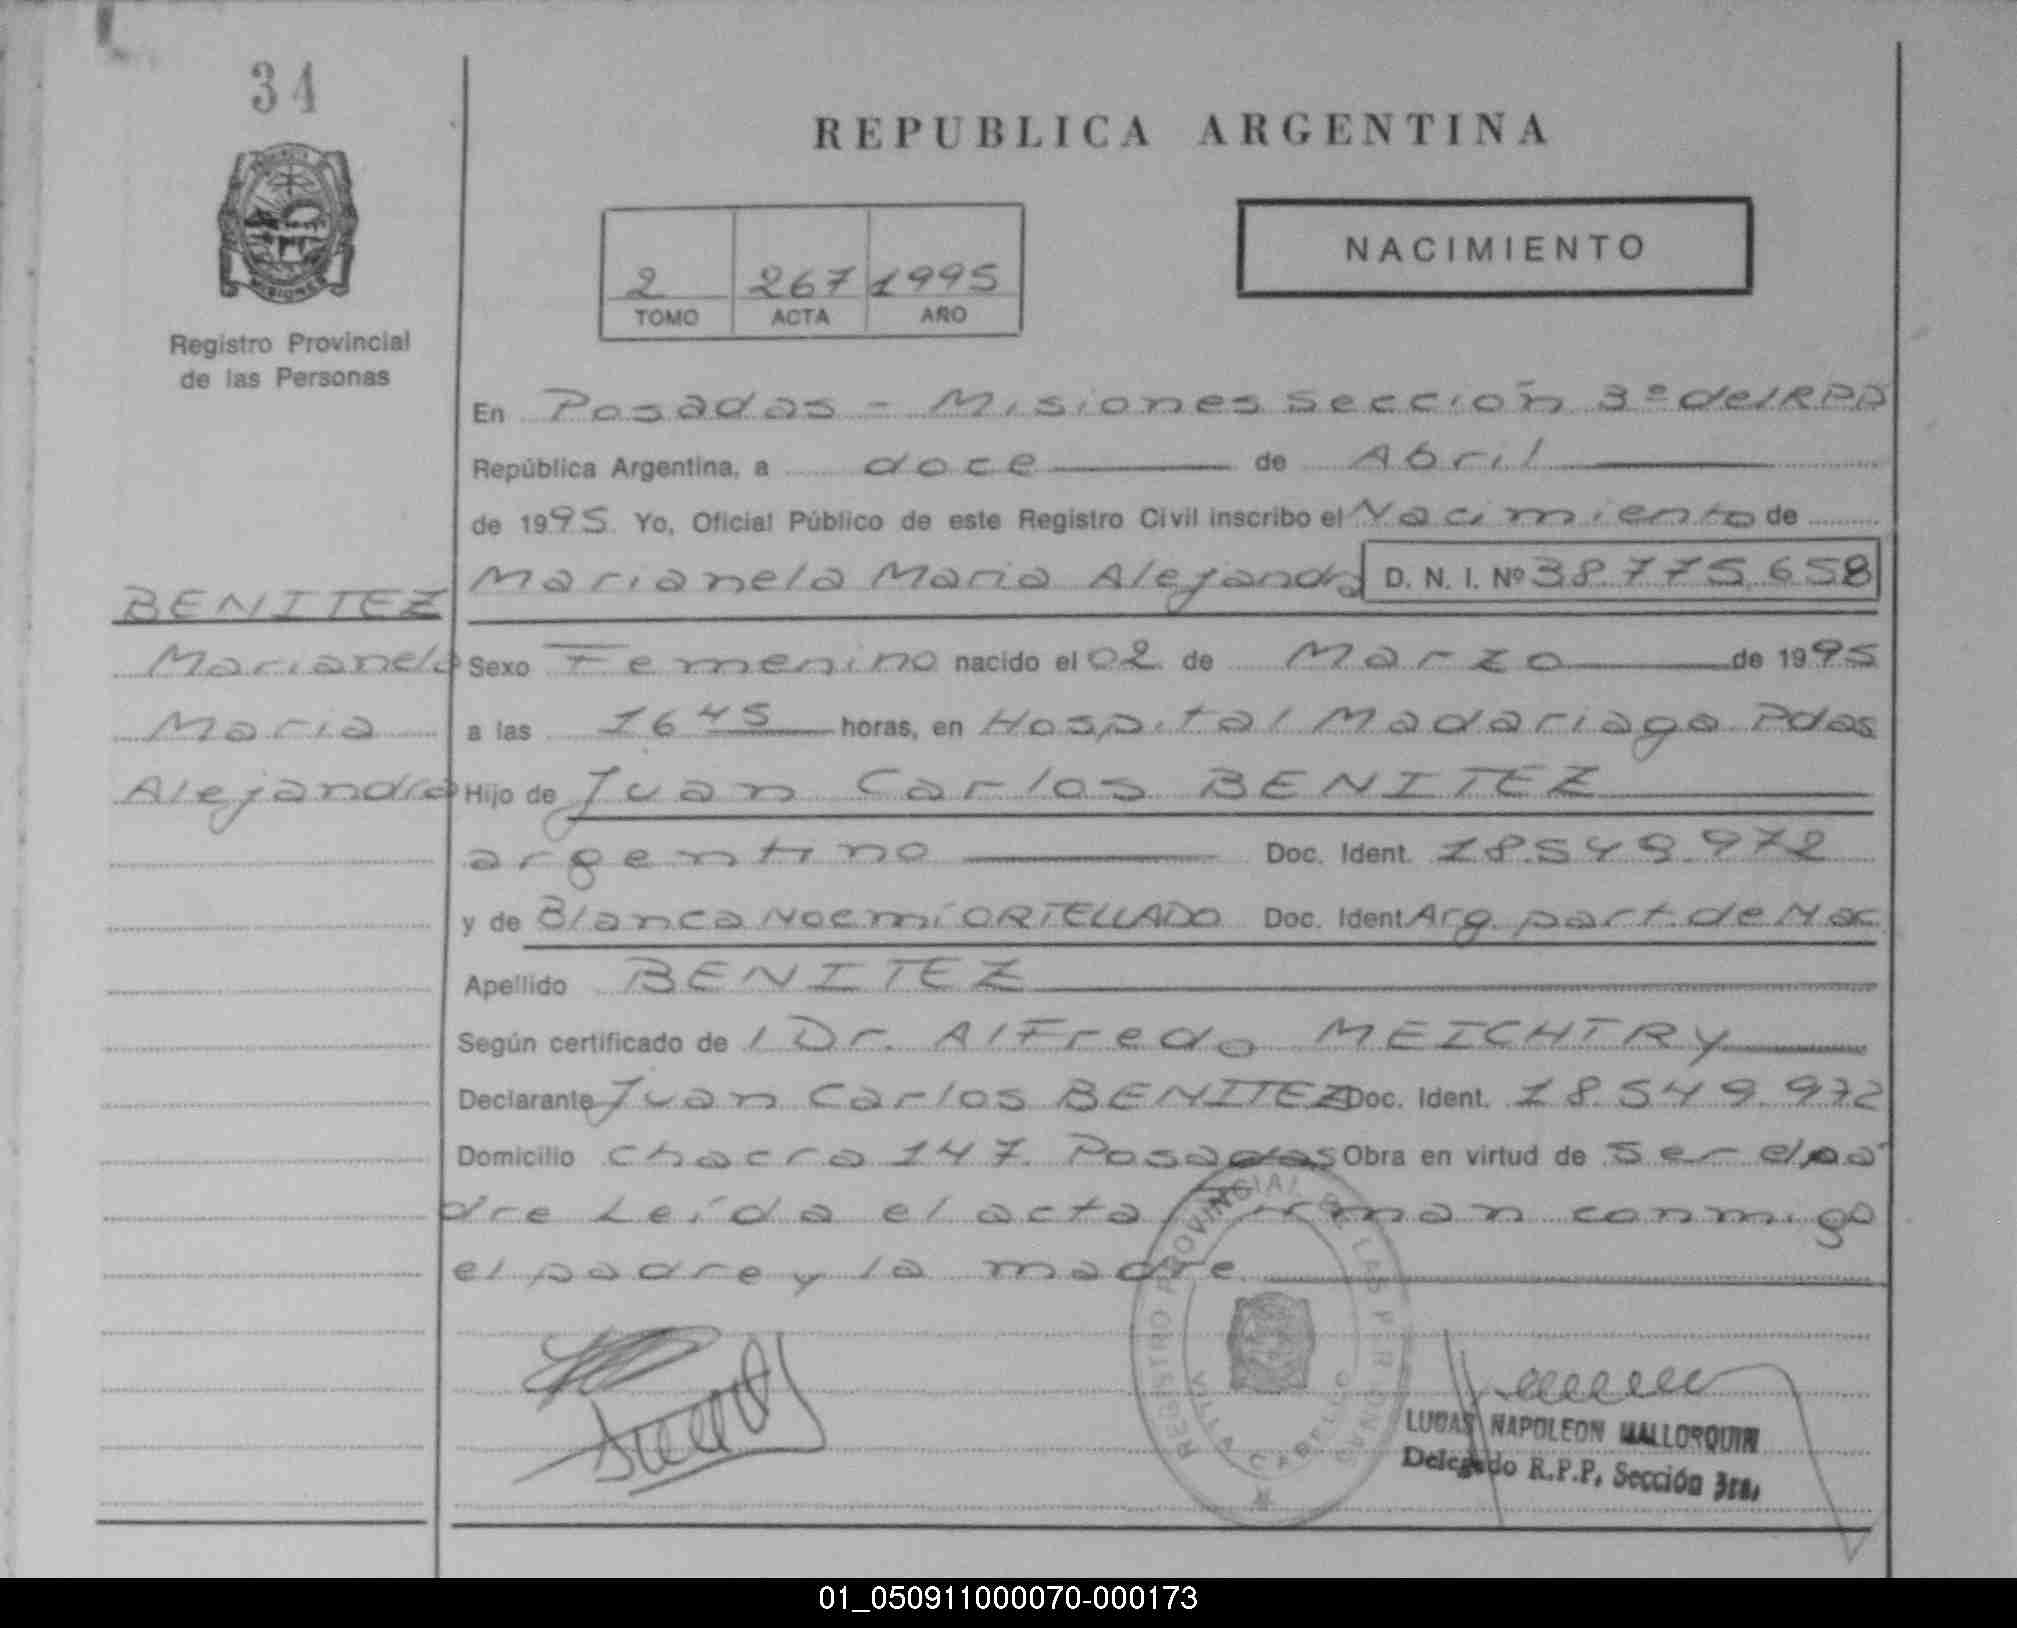 34
REPUBLICA ARGENTINA
MISIONES
Registro Provincial
de las Personas
2 267 1995
TOMO ACTA AÑO
NACIMIENTO
En Posadas - Misiones Sección 3º del RPP
República Argentina, a doce de Abril
de 1995. Yo, Oficial Público de este Registro Civil inscribo el Nacimiento de
Marianela Maria Alejandra D. N. I. Nº 38.775.658
BENITEZ
Marianela
Maria
Alejandra
Sexo Femenino nacido el 02 de Marzo de 1995
a las 16 45 horas, en Hospital Madariaga Pdas
Hijo de Juan Carlos BENITEZ
argentino Doc. Ident. 18.549.972
y de Blanca Noemí ORTELLADO Doc. Ident Arg. part. de Nac
Apellido BENITEZ
Según certificado de l Dr. Alfredo MEICHTRY
Declarante Juan Carlos BENITEZ Doc. Ident. 18.549.972
Domicilio Chacra 147. Posadas Obra en virtud de ser el pa
dre Leída el acta Firman conmigo
el padre y la madre
REGISTRO PROVINCIAL DE LAS PERSONAS
VILLA CABELLO
LUCAS NAPOLEON MALLORQUIN
Delegado R.P.P. Sección 3ra.
01_050911000070-000173